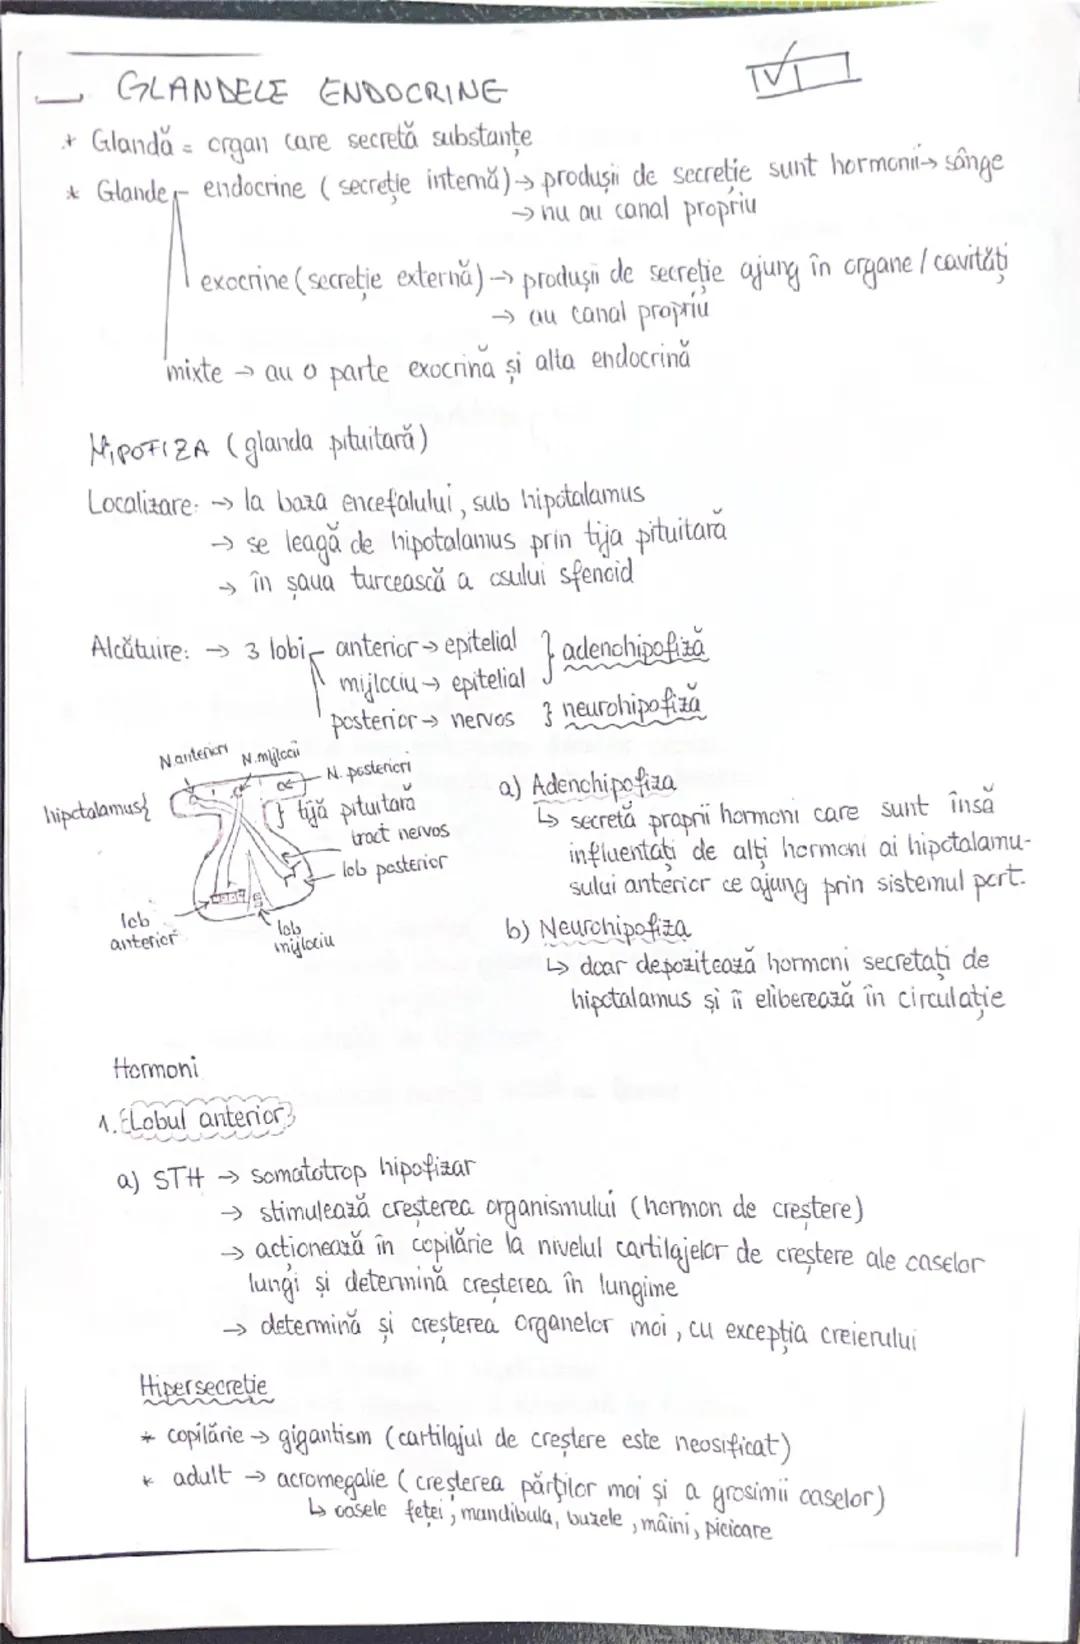 GLANDELE ENDOCRINE
* Glandă = organ care secretă substanțe
* Glande - endocrine ( secreție internă) → produșii de secreție sunt hormonii → sânge
→ nu au canal propriu
exocrine (secreție externă) → produșii de secreție ajung în organe / cavități
→ au canal propriu
mixte → au o parte exocrină și alta endocrină
HIPOFIZA (glanda pituitară)
Localizare: → la baza encefalului, sub hipotalamus
→ se leagă de hipotalamus prin tija pituitară
→ în șaua turcească a osului sfenoid
Alcătuire: → 3 lobi - anterior → epitelial } adenohipofiză
mijlociu → epitelial
posterior → nervos } neurohipofiză
N anteriori
N. mijlocii
N. posteriori
hipotalamus {
} tijă pituitară
tract nervos
lob posterior
lob
anterior
lob
mijlociu
a) Adenohipofiza
↳ secretă proprii hormoni care sunt însă
influentați de alți hormoni ai hipotalamu-
sului anterior ce ajung prin sistemul port.
b) Neurohipofiza
↳ doar depozitează hormoni secretați de
hipotalamus și îi eliberează în circulație
Hormoni
1. Lobul anterior
a) STH → somatotrop hipofizar
→ stimulează creșterea organismului (hormon de creștere)
→ acționează în copilărie la nivelul cartilajelor de creștere ale oaselor
lungi și determină creșterea în lungime
→ determină și creșterea organelor moi, cu excepția creierului
Hipersecreție
* copilărie → gigantism (cartilajul de creștere este neosificat)
* adult → acromegalie ( creșterea părților moi și a grosimii oaselor)
↳ oasele feței, mandibula, buzele, mâini, picioare